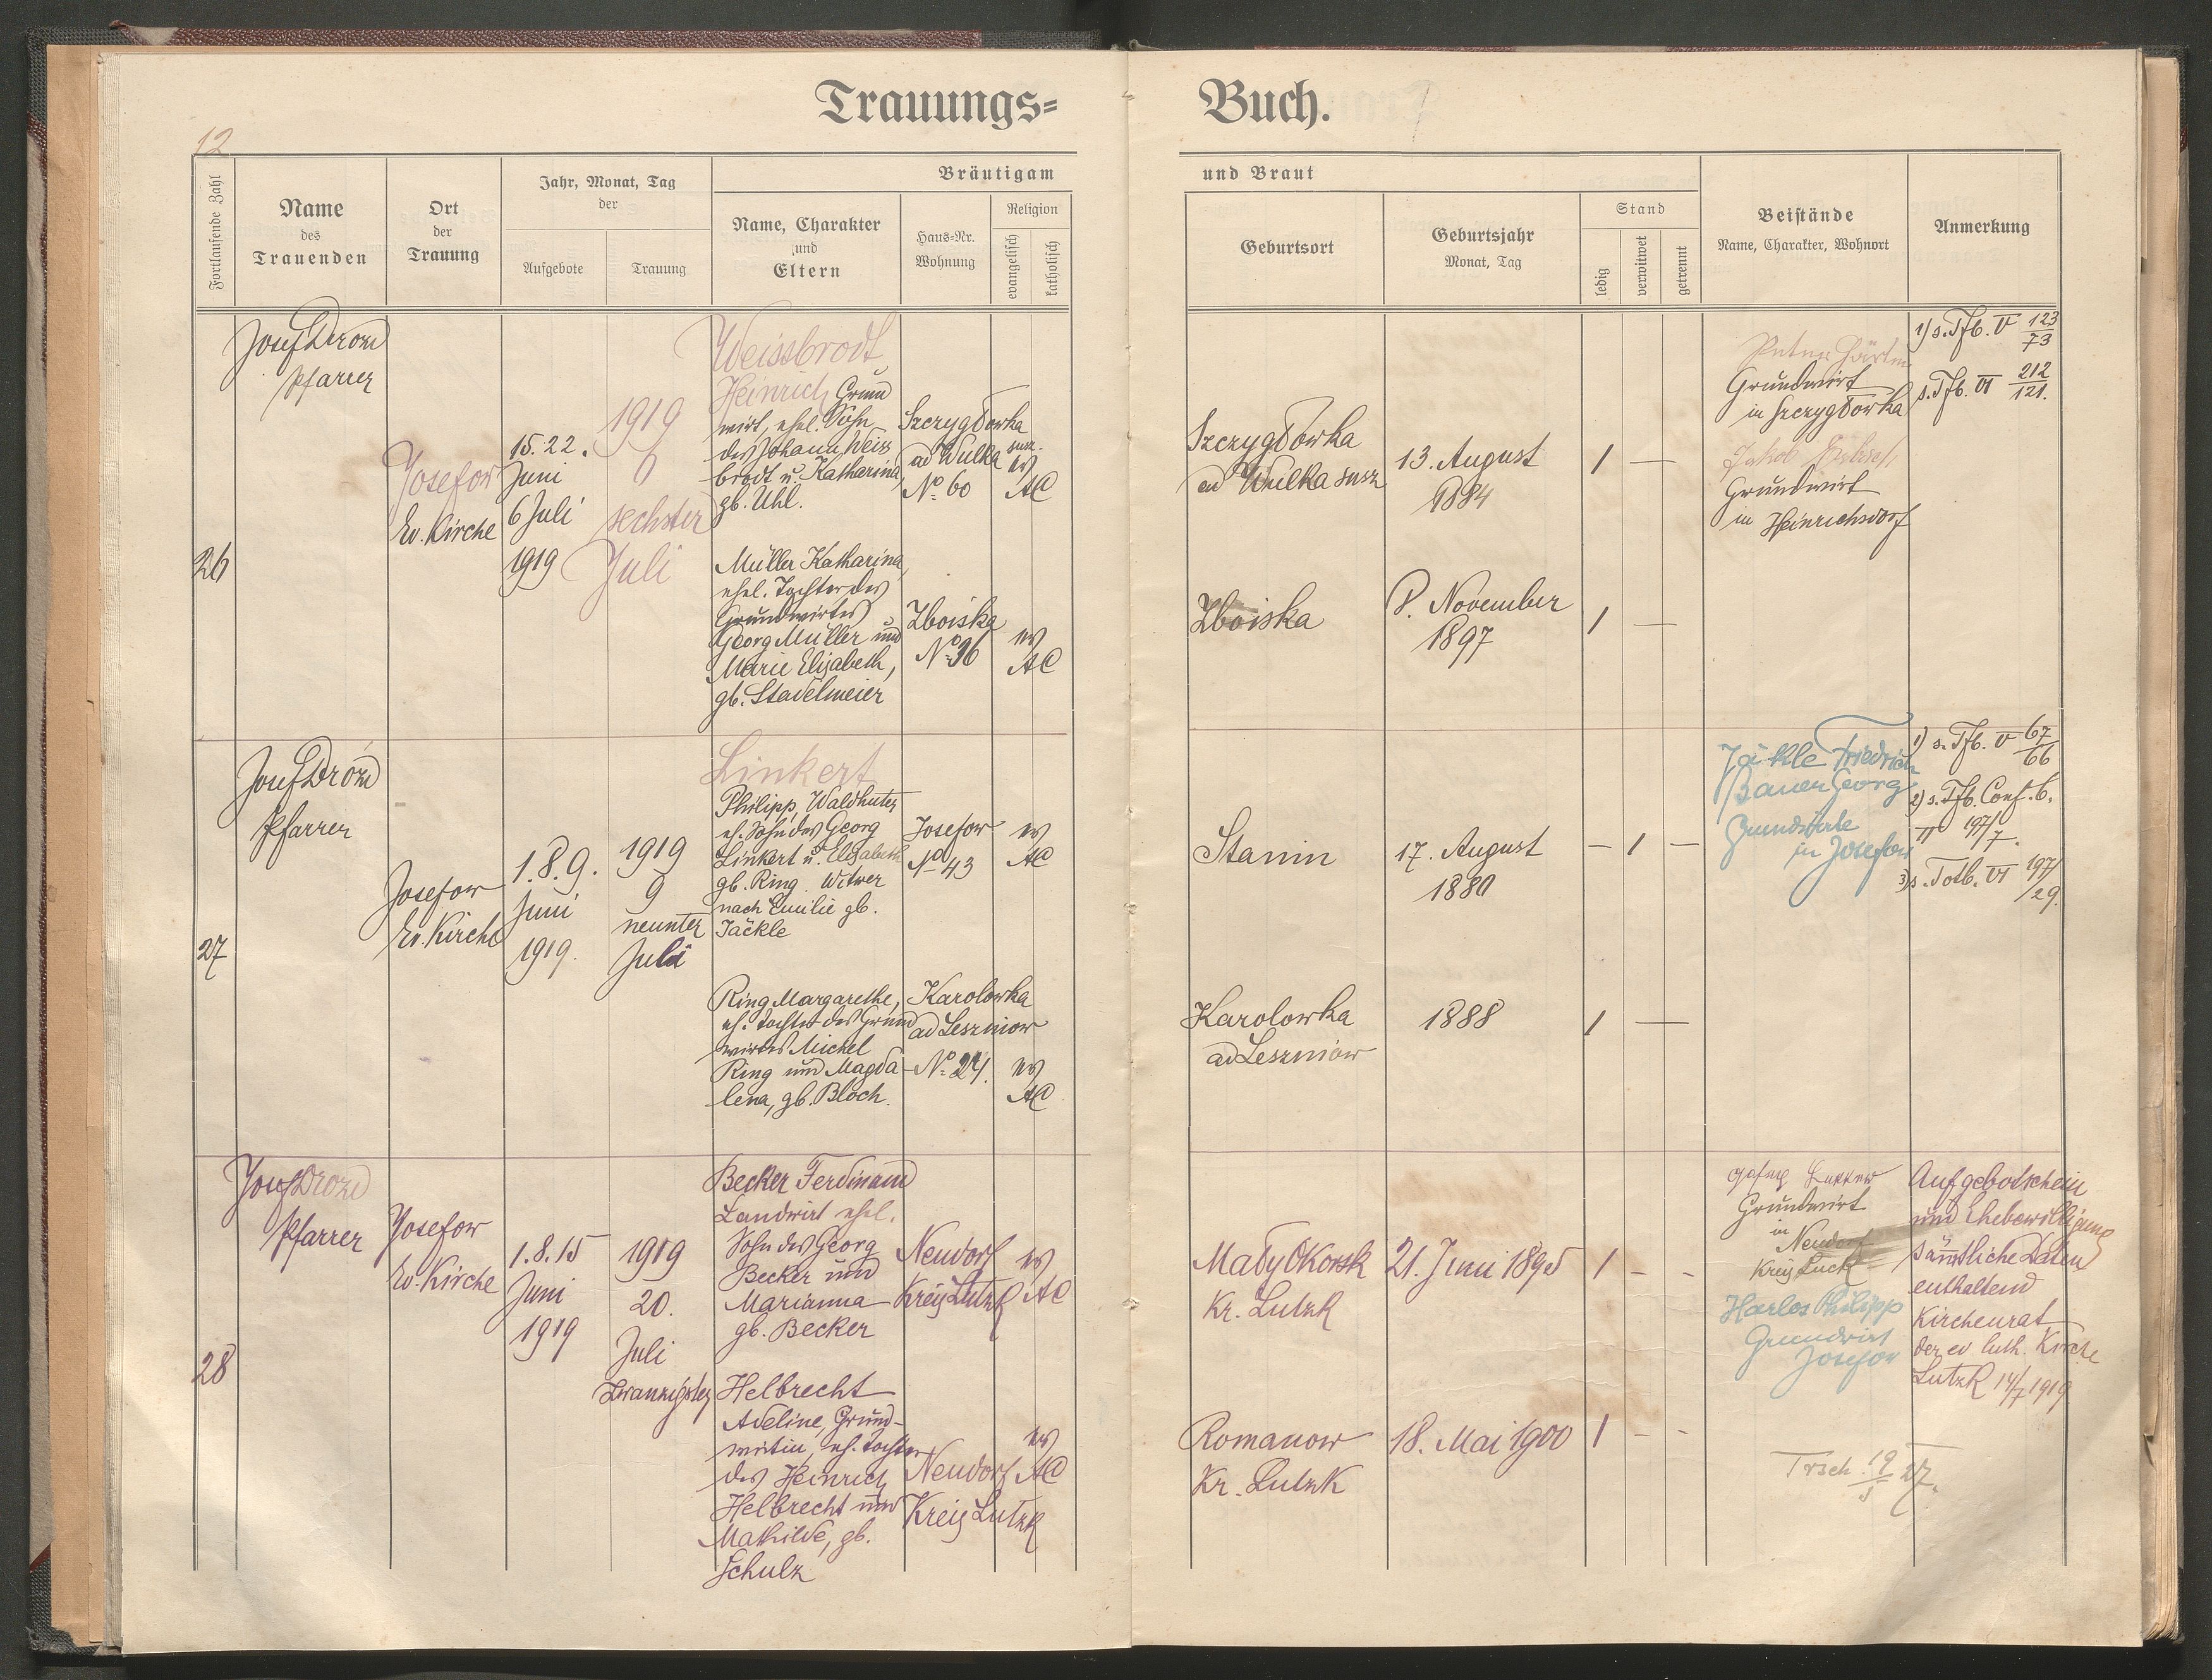 Trauungs=
Buch.
12
Fortlaufende Zahl
Name
des
Trauenden
Ort
der
Trauung
Jahr, Monat, Tag
der
Aufgebote
Trauung
Bräutigam
Name, Charakter
und
Eltern
Haus=Nr.
Wohnung
Religion
evangelisch
katholisch
und Braut
Geburtsort
Geburtsjahr
Monat, Tag
Stand
ledig
verwitwet
getrennt
Beistände
Name, Charakter, Wohnort
Anmerkung
26
Josef Drozd
Pfarrer
Josefow
Ev. Kirche
15. 22.
Juni
6 Juli
1919
1919
6
sechster
Juli
Weissbrodt
Heinrich Grund
wirt, ehel. Sohn
des Johann Weiss
brodt u. Katharina,
gb. Uhl.
Szczygłowka
ad Wulka susz.
No. 60
ev
AC
Szczygłowka
ad Wulka susz
13. August
1884
1 —
Grundwirt
in Szczygłowka
Jakob
Grundwirt
in Heinrichsdorf
1) s. Tfb. V 123/73
s. Tfb. VI 212/121.
Müller Katharina,
ehel. Tochter des
Grundwirtes
Georg Müller und
Marie Elisabeth,
gb. Stadelmeier
Zboiska
No 36
ev
AC
Zboiska
8. November
1897
1 —
27
Josef Drozd
Pfarrer
Josefow
Ev. Kirche
1. 8. 9.
Juni
1919.
1919
9
neunter
Juli
Linkert
Philipp, Waldhüter
eh. Sohn des Georg
Linkert u. Elisabeth
gb. Ring. Witwer
nach Emilie gb.
Jäckle
Josefow
No 43
ev
AC
Stanin
17. August
1880
— 1 —
Jäkle Friedrich
Bauer Georg
Grundwirte
in Josefow
1) s. Tfb. V 67/66
2) s. Tfb. Conf. b.
II 197/7.
3) s. Totb. VI 197/29.
Ring Margarethe,
eh. Tochter des Grund
wirtes Michel
Ring und Magda-
lena, gb. Bloch.
Karolowka
ad Leszniow
No. 24.
ev
AC
Karolowka
ad Leszniow
1888
1 —
28
Josef Drozd
Pfarrer
Josefow
Ev. Kirche
1. 8. 15
Juni
1919
1919
20.
Juli
Zwanzigster
Becker Ferdinand
Landwirt ehel.
Sohn des Georg
Becker und
Marianna
gb. Becker
Neudorf
Kreis Lutzk
ev
AC
Mały Okorsk
Kr. Lutzk
21. Juni 1895
1 - -
Grundwirt
in
Neudorf
Kreis Luck
Harlos Philipp
Grundwirt
Josefow
Aufgebotschein
und Ehebewilligung
sämtliche Daten
enthaltend
Kirchenrat
der ev luth. Kirche
Lutzk 14/7 1919
Helbrecht
Adeline, Grund-
wirtin, eh. Tochter
des Heinrich
Helbrecht und
Mathilde, gb.
Schulz
Neudorf
Kreis Lutzk
ev
AC
Romanow
Kr. Lutzk
18. Mai 1900
1 - -
Trsch.